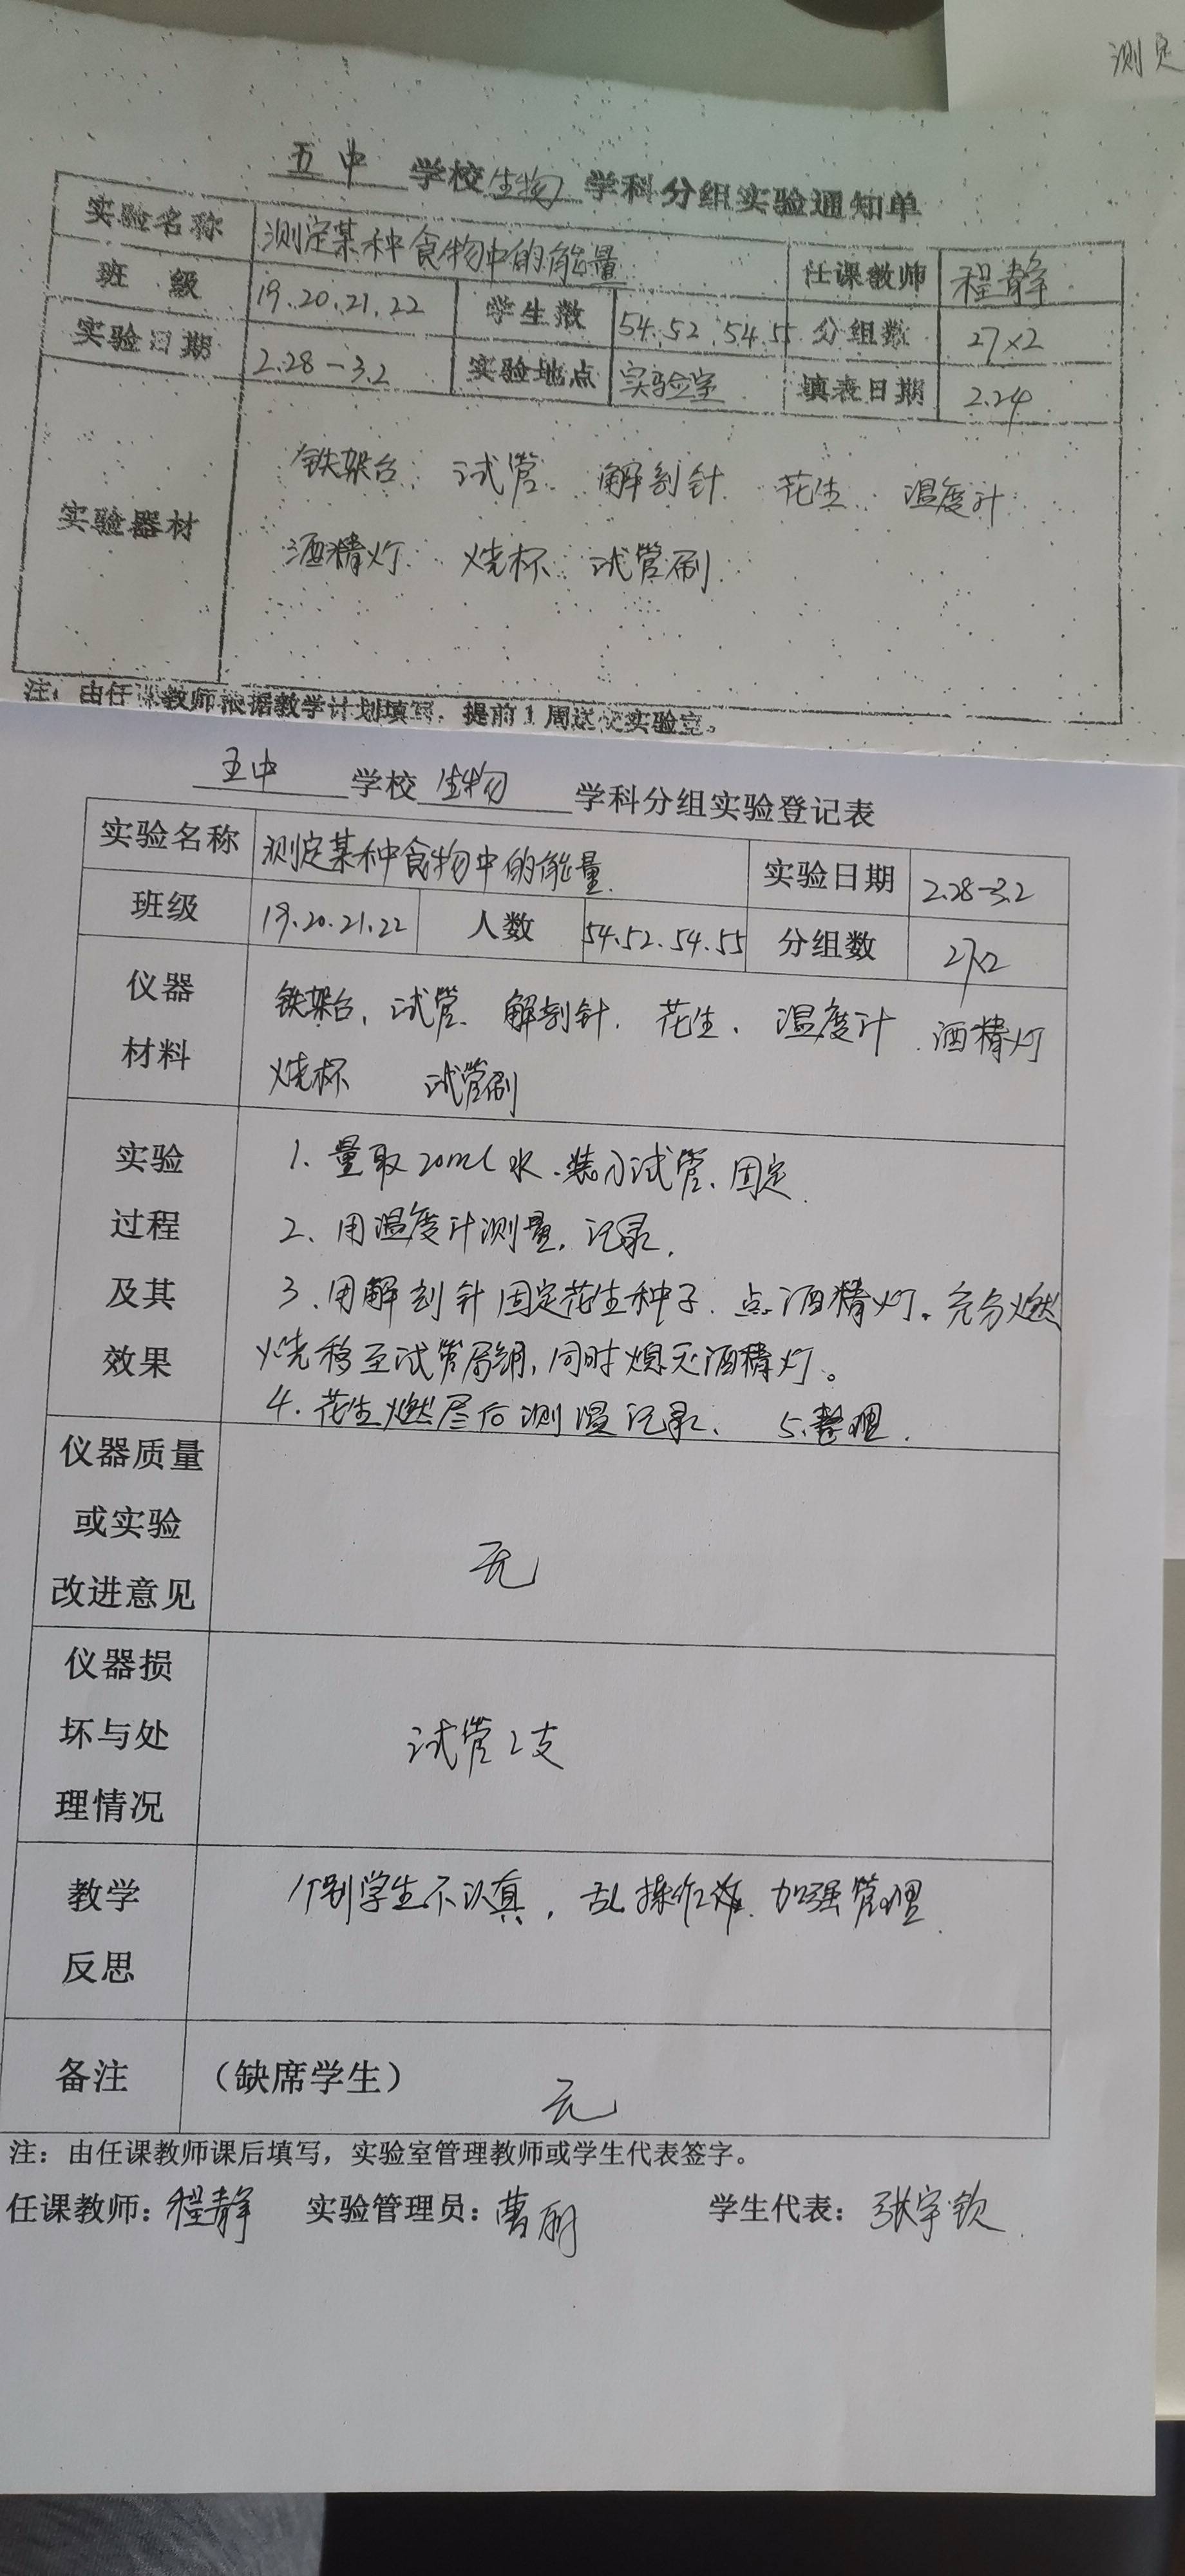 测定
五中 学校 生物 学科分组实验通知单
实验名称 测定某种食物中的能量 任课教师 程静
班 级 19.20.21.22 学生数 54.52.54.55 分组数 27×2
实验日期 2.28-3.2 实验地点 实验室 填表日期 2.24
实验器材 铁架台、试管、解剖针、花生、温度计
酒精灯、烧杯、试管刷
注：由任课教师根据教学计划填写，提前1周送交实验室。
五中 学校 生物 学科分组实验登记表
实验名称 测定某种食物中的能量 实验日期 2.28-3.2
班级 19.20.21.22 人数 54.52.54.55 分组数 27×2
仪器材料 铁架台、试管、解剖针、花生、温度计、酒精灯
烧杯 试管刷
实验过程及其效果 1、量取20ml水、装入试管、固定
2、用温度计测量，记录，
3、用解剖针固定花生种子、点酒精灯。充分燃
烧移至试管底部，同时熄灭酒精灯。
4.花生燃尽后测温记录、 5.整理.
仪器质量或实验改进意见 无
仪器损坏与处理情况 试管2支
教学反思 个别学生不认真，乱操作 加强管理
备注 （缺席学生） 无
注：由任课教师课后填写，实验室管理教师或学生代表签字。
任课教师：程静 实验管理员：曹丽 学生代表：张宇钦